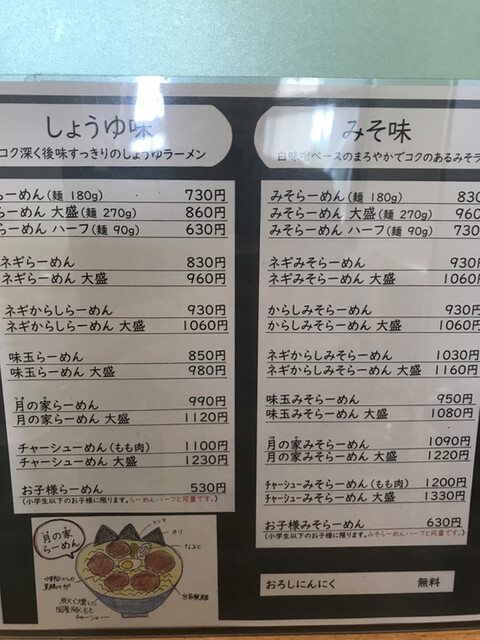 しょうゆ味
コク深く後味すっきりのしょうゆラーメン
らーめん(麺 180g) 730円
らーめん 大盛(麺 270g) 860円
らーめん ハーフ(麺 90g) 630円
ネギらーめん 830円
ネギらーめん 大盛 960円
ネギからしらーめん 930円
ネギからしらーめん 大盛 1060円
味玉らーめん 850円
味玉らーめん 大盛 980円
月の家らーめん 990円
月の家らーめん 大盛 1120円
チャーシューめん(もも肉) 1100円
チャーシューめん 大盛 1230円
お子様らーめん 530円
(小学生以下のお子様に限ります。らーめんハーフと同量です。)
月の家
らーめん
メンマ
のり
なると
自家製麺
炭火で燻した
国産豚もも
チャーシュー
みそ味
白味噌ベースのまろやかでコクのあるみそラ
みそらーめん(麺 180g) 830
みそらーめん 大盛(麺 270g) 960
みそらーめん ハーフ(麺 90g) 730
ネギみそらーめん 930円
ネギみそらーめん 大盛 1060円
からしみそらーめん 930円
からしみそらーめん 大盛 1060円
ネギからしみそらーめん 1030円
ネギからしみそらーめん 大盛 1160円
味玉みそらーめん 950円
味玉みそらーめん 大盛 1080円
月の家みそらーめん 1090円
月の家みそらーめん 大盛 1220円
チャーシューみそらーめん(もも肉) 1200円
チャーシューみそらーめん 大盛 1330円
お子様みそらーめん 630円
(小学生以下のお子様に限ります。みそらーめんハーフと同量です。)
おろしにんにく 無料